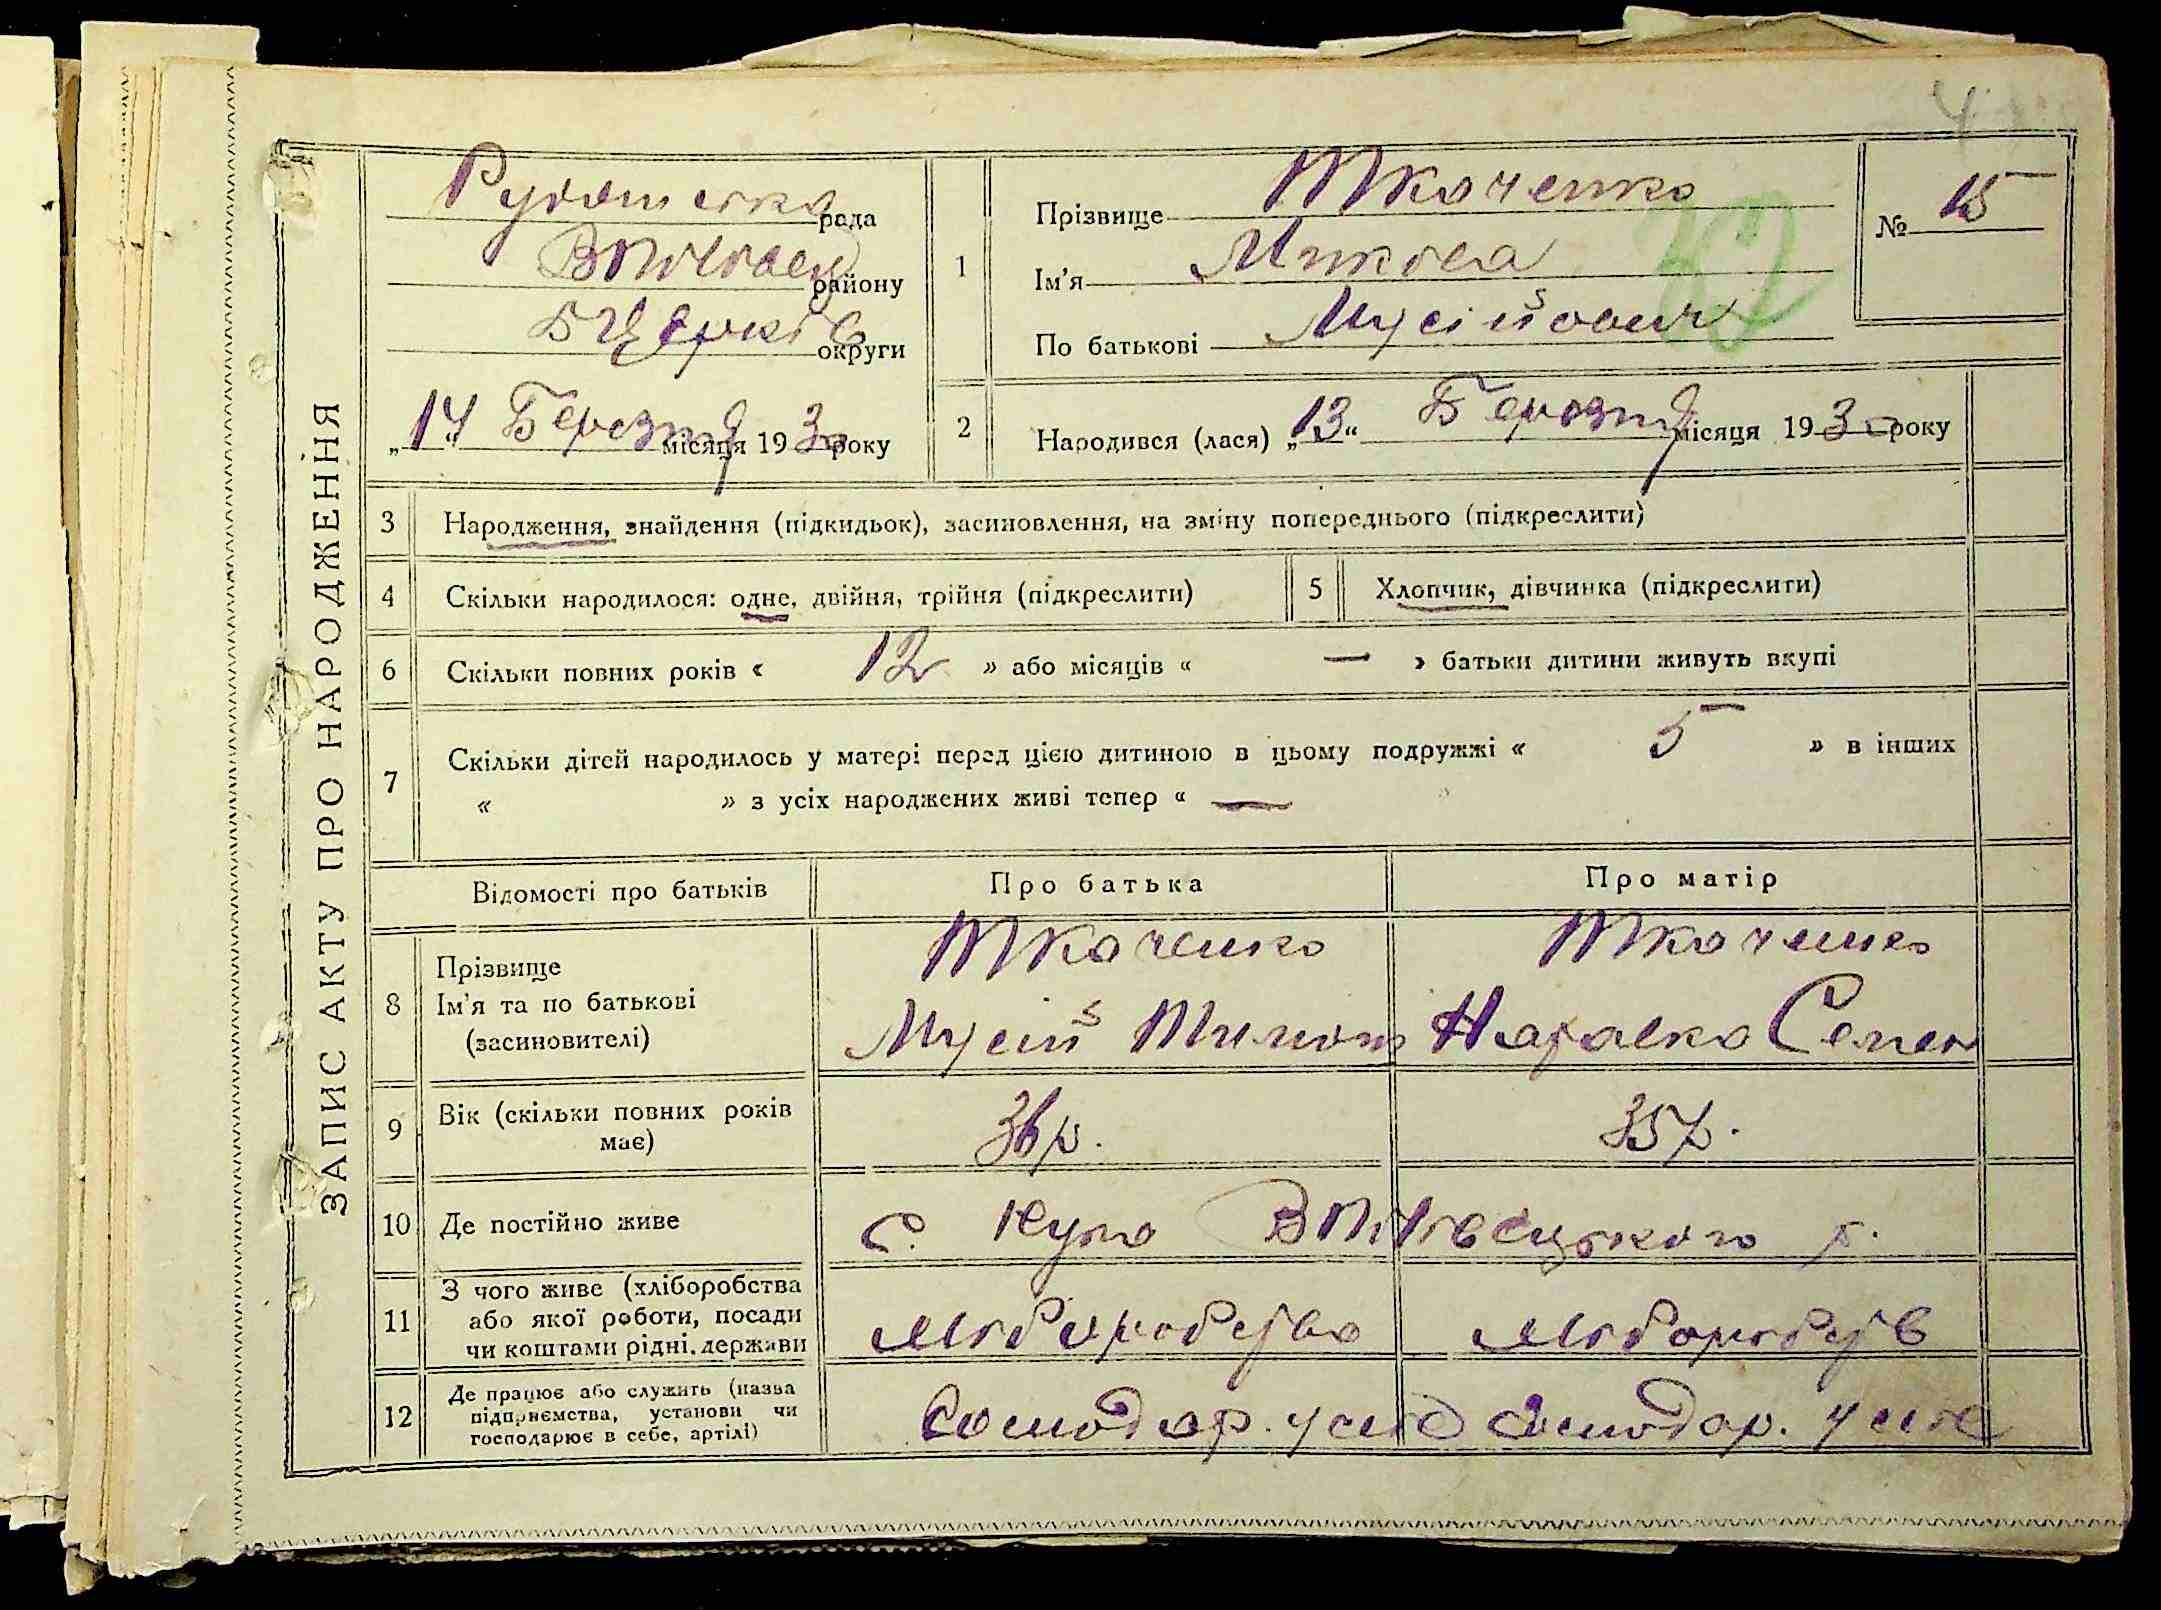 4
ЗАПИС АКТУ ПРО НАРОДЖЕННЯ
рада
району
БЦерків округи
„14“ Березня місяця 1930 року
1
Прізвище Ткаченко
Ім'я Микола
По батькові Мусійович
№ 15
2
Народився (лася) „13“ Березня місяця 1930 року
3 Народження, знайдення (підкидьок), засиновлення, на зміну попереднього (підкреслити)
4 Скільки народилося: одне, двійня, трійня (підкреслити)
5 Хлопчик, дівчинка (підкреслити)
6 Скільки повних років « 12 » або місяців « — » батьки дитини живуть вкупі
7 Скільки дітей народилось у матері перед цією дитиною в цьому подружжі « 5 » в інших
« » з усіх народжених живі тепер « —
Відомості про батьків Про батька Про матір
8 Прізвище Ткаченко Ткаченко
Ім'я та по батькові Мусій Тимош Наталка Семен
(засиновителі)
9 Вік (скільки повних років має) 36 р. 35 р.
10 Де постійно живе с. р.
11 З чого живе (хліборобства
або якої роботи, посади
чи коштами рідні, держави
хліборобства хліборобств
12 Де працює або служить (назва
підприємства, установи чи
господарює в себе, артілі)
Господар. у себе Господар. у себе